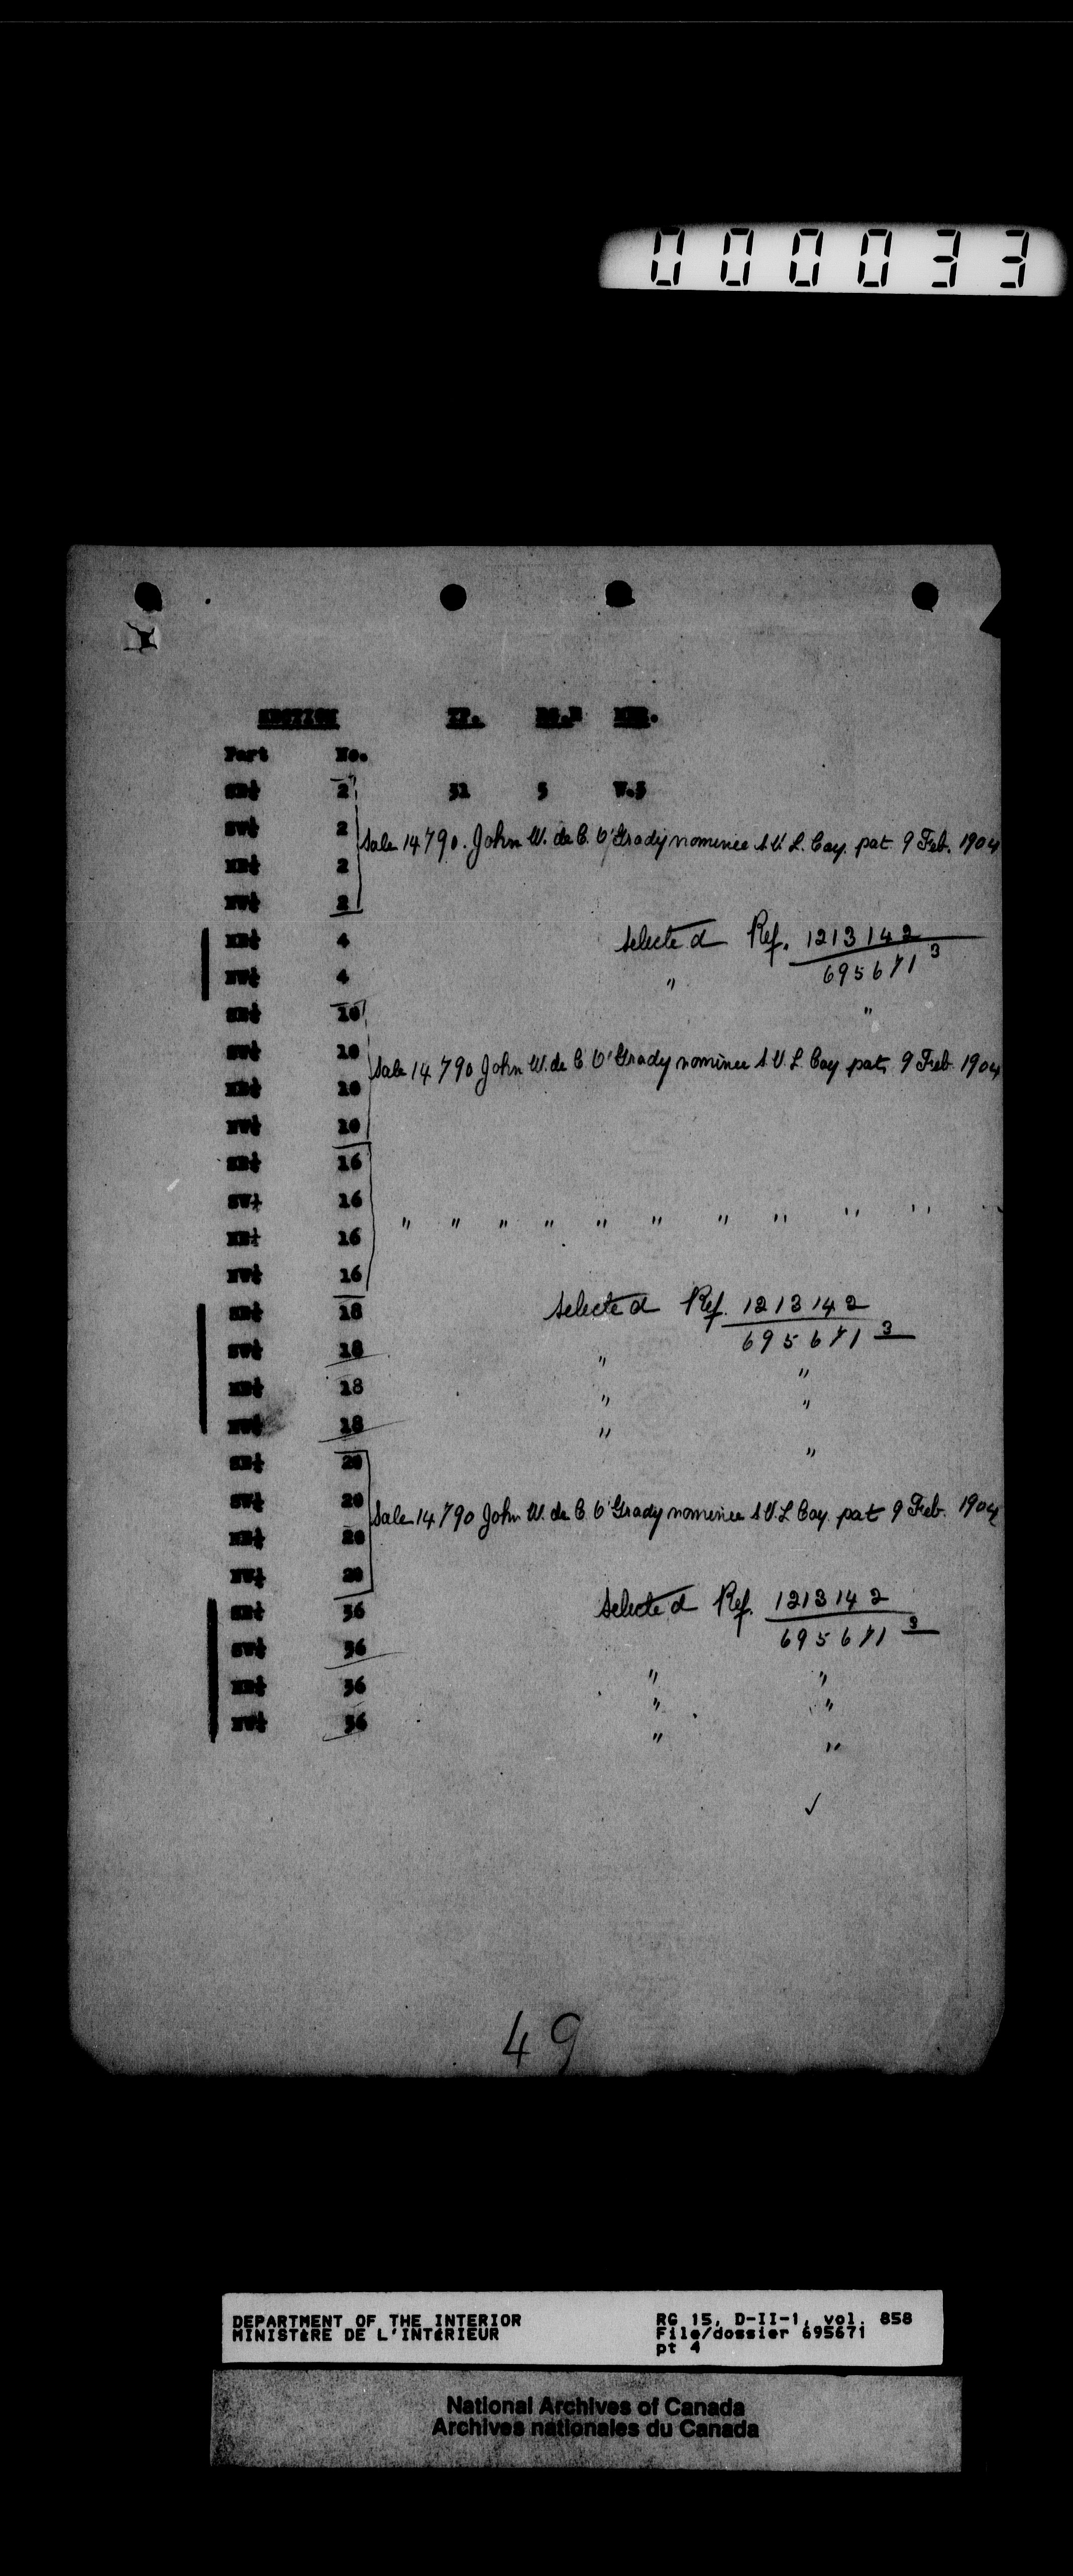 000033
SECTION TP. RG. MER.
Part No.
SE¼ 2 31 5 W.3
SW¼ 2
Sale 14790. John W. de C. O'Grady nominee S.V.L. Coy. pat. 9 Feb. 1904
NE¼ 2
NW¼ 2
NE¼ 4 selected Ref. 1213142
695671 3
NW¼ 4 "
SE¼ 10 "
SW¼ 10
Sale 14790 John W. de C. O'Grady nominee S.V.L. Coy pat. 9 Feb 1904
NE¼ 10
NW¼ 10
SE¼ 16
SW¼ 16
" " " " " " " " " "
NE¼ 16
NW¼ 16
SE¼ 18 selected Ref. 1213142
695671 3
SW¼ 18 " "
NE¼ 18 " "
NW¼ 18 " "
SE¼ 20
SW¼ 20
Sale 14790 John W. de C. O'Grady nominee S.V.L Coy. pat 9 Feb. 1904
NE¼ 20
NW¼ 20
SE¼ 36 selected Ref. 1213142
695671 3
SW¼ 36 " "
NE¼ 36 " "
NW¼ 36 " "
✓
49
DEPARTMENT OF THE INTERIOR
MINISTÈRE DE L'INTÉRIEUR
RG 15, D-II-1, vol. 858
File/dossier 695671
pt 4
National Archives of Canada
Archives nationales du Canada